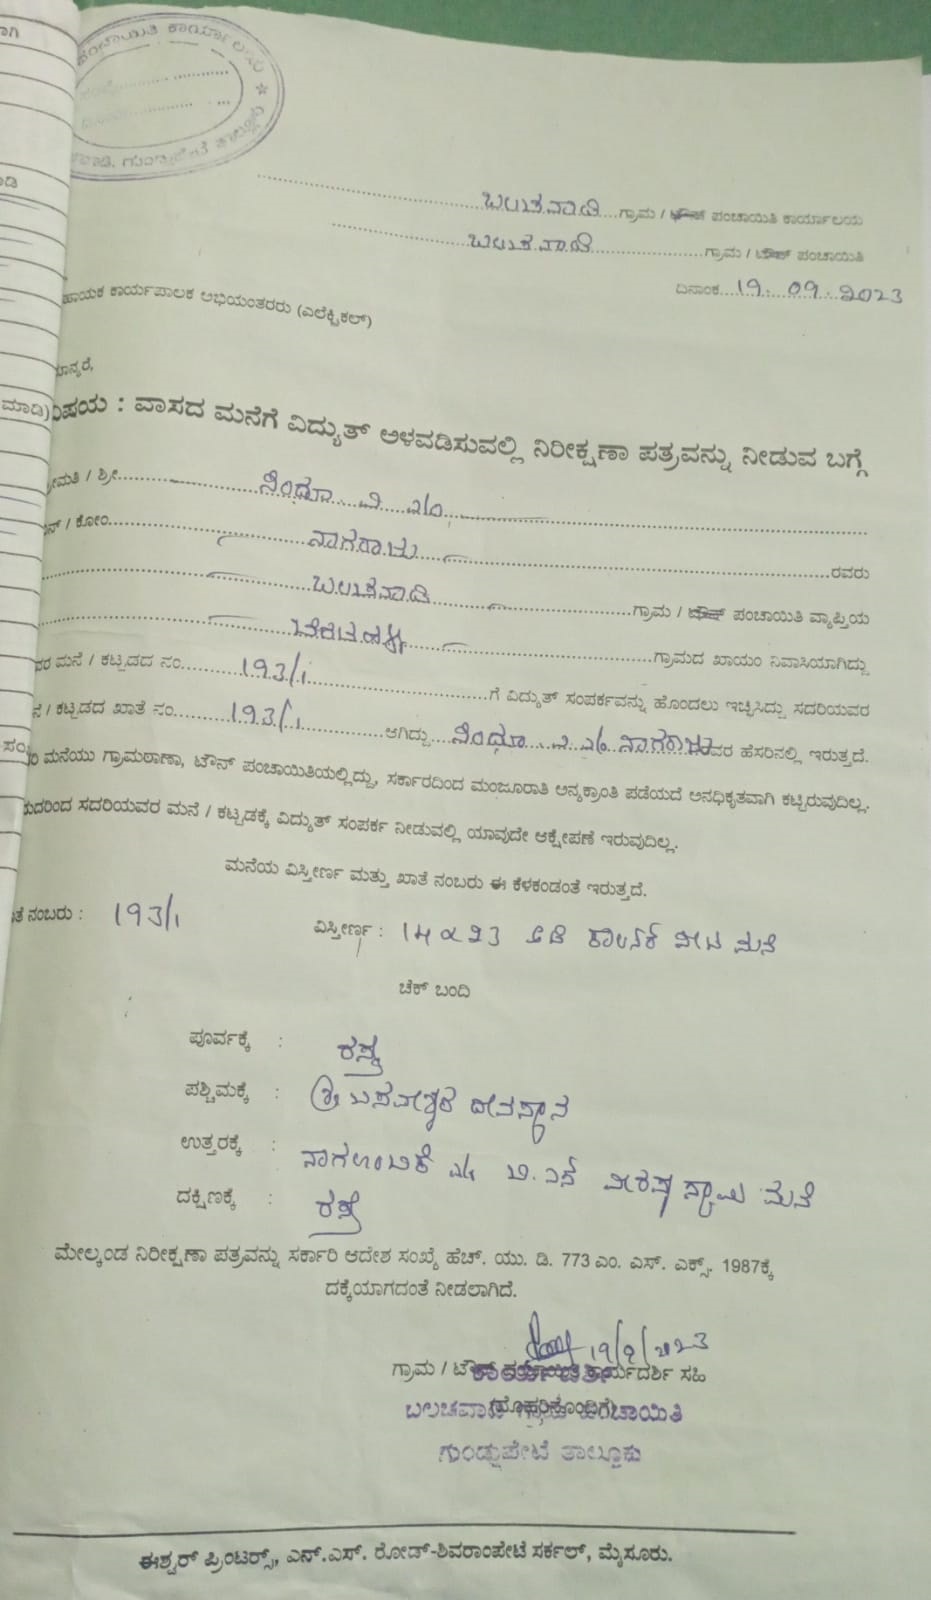 ಪಂಚಾಯಿತಿ ಕಾರ್ಯಾಲಯ ★
ಗುಂಡ್ಲುಪೇಟೆ ತಾಲ್ಲೂಕು
ಬಲಚವಾಡಿ ಗ್ರಾಮ / ಟೌನ್ ಪಂಚಾಯಿತಿ ಕಾರ್ಯಾಲಯ
ಬಲಚವಾಡಿ ಗ್ರಾಮ / ಟೌನ್ ಪಂಚಾಯಿತಿ
ದಿನಾಂಕ 19.09.2023
ಹಾಯಕ ಕಾರ್ಯಪಾಲಕ ಅಭಿಯಂತರರು (ಎಲೆಕ್ಟ್ರಿಕಲ್)
ಮಾನ್ಯರೆ,
ವಿಷಯ : ವಾಸದ ಮನೆಗೆ ವಿದ್ಯುತ್ ಅಳವಡಿಸುವಲ್ಲಿ ನಿರೀಕ್ಷಣಾ ಪತ್ರವನ್ನು ನೀಡುವ ಬಗ್ಗೆ
ಶ್ರೀಮತಿ / ಶ್ರೀ ಸಿಂಧೂ ವಿ
ಬಿನ್ / ಕೋಂ ನಾಗರಾಜು ರವರು
ಬಲಚವಾಡಿ ಗ್ರಾಮ / ಟೌನ್ ಪಂಚಾಯಿತಿ ವ್ಯಾಪ್ತಿಯ
ಗ್ರಾಮದ ಖಾಯಂ ನಿವಾಸಿಯಾಗಿದ್ದು
ವರ ಮನೆ / ಕಟ್ಟಡದ ನಂ 193/1 ಗೆ ವಿದ್ಯುತ್ ಸಂಪರ್ಕವನ್ನು ಹೊಂದಲು ಇಚ್ಛಿಸಿದ್ದು ಸದರಿಯವರ
ನೆ / ಕಟ್ಟಡದ ಖಾತೆ ನಂ 193/1 ಆಗಿದ್ದು ಸಿಂಧೂ ವಿ ನಾಗರಾಜು ವರ ಹೆಸರಿನಲ್ಲಿ ಇರುತ್ತದೆ.
ಮನೆಯು ಗ್ರಾಮಠಾಣಾ, ಟೌನ್ ಪಂಚಾಯಿತಿಯಲ್ಲಿದ್ದು, ಸರ್ಕಾರದಿಂದ ಮಂಜೂರಾತಿ ಅನ್ಯಕ್ರಾಂತಿ ಪಡೆಯದೆ ಅನಧಿಕೃತವಾಗಿ ಕಟ್ಟಿರುವುದಿಲ್ಲ.
ದುದರಿಂದ ಸದರಿಯವರ ಮನೆ / ಕಟ್ಟಡಕ್ಕೆ ವಿದ್ಯುತ್ ಸಂಪರ್ಕ ನೀಡುವಲ್ಲಿ ಯಾವುದೇ ಆಕ್ಷೇಪಣೆ ಇರುವುದಿಲ್ಲ.
ಮನೆಯ ವಿಸ್ತೀರ್ಣ ಮತ್ತು ಖಾತೆ ನಂಬರು ಈ ಕೆಳಕಂಡಂತೆ ಇರುತ್ತದೆ.
ತೆ ನಂಬರು : 193/1 ವಿಸ್ತೀರ್ಣ : ಮನೆ
ಚೆಕ್ ಬಂದಿ
ಪೂರ್ವಕ್ಕೆ : ರಸ್ತೆ
ಪಶ್ಚಿಮಕ್ಕೆ : ಶ್ರೀ ಬಸವೇಶ್ವರ ದೇವಸ್ಥಾನ
ಉತ್ತರಕ್ಕೆ : ಸ್ವಾಮಿ ಮನೆ
ದಕ್ಷಿಣಕ್ಕೆ : ರಸ್ತೆ
ಮೇಲ್ಕಂಡ ನಿರೀಕ್ಷಣಾ ಪತ್ರವನ್ನು ಸರ್ಕಾರಿ ಆದೇಶ ಸಂಖ್ಯೆ ಹೆಚ್. ಯು. ಡಿ. 773 ಎಂ. ಎಸ್. ಎಕ್ಸ್. 1987ಕ್ಕೆ
ದಕ್ಕೆಯಾಗದಂತೆ ನೀಡಲಾಗಿದೆ.
19/9/2023
ಗ್ರಾಮ / ಟೌನ್ ಪಂಚಾಯಿತಿ ಕಾರ್ಯದರ್ಶಿ ಸಹಿ
(ಮೊಹರಿನೊಂದಿಗೆ)
ಬಲಚವಾಡಿ ಗ್ರಾಮ ಪಂಚಾಯಿತಿ
ಗುಂಡ್ಲುಪೇಟೆ ತಾಲ್ಲೂಕು
ಈಶ್ವರ್ ಪ್ರಿಂಟರ್ಸ್, ಎನ್.ಎಸ್. ರೋಡ್-ಶಿವರಾಂಪೇಟೆ ಸರ್ಕಲ್, ಮೈಸೂರು.